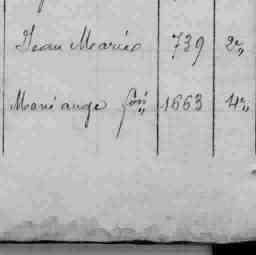 Jean Marie 739 2"
Marie ange 1663 4"